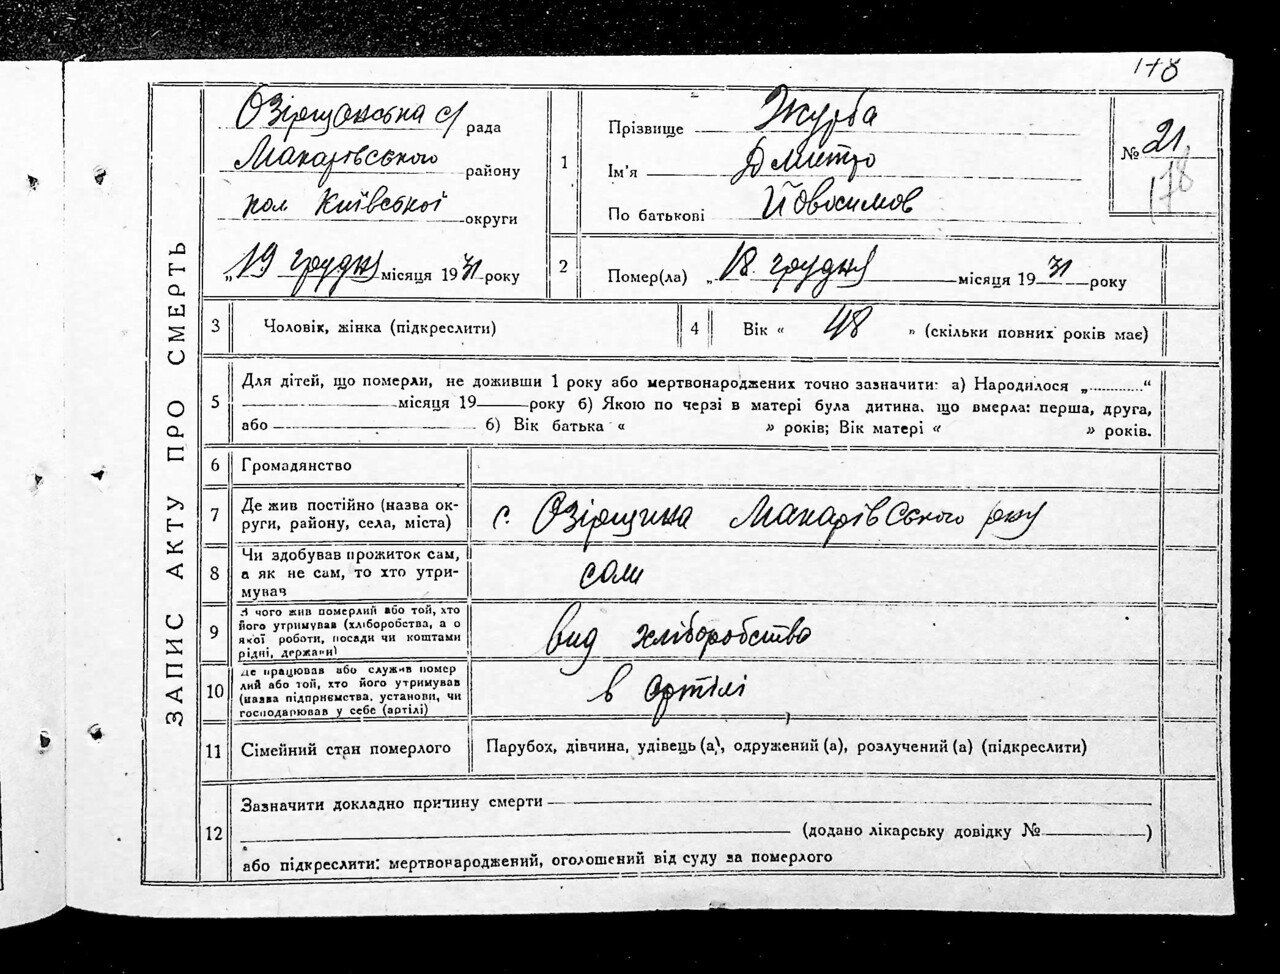 178
ЗАПИС АКТУ ПРО СМЕРТЬ
Озірщанська с/ рада
Макарівського району
кол Київської округи
„19 грудня місяця 1931 року
1
Прізвище Журба
Ім'я Дмитро
По батькові Йовхимов
№ 21
178
2
Помер(ла) „18 грудня місяця 1931 року
3 Чоловік, жінка (підкреслити)
4 Вік « 48 » (скільки повних років має)
5
Для дітей, що померли, не доживши 1 року або мертвонароджених точно зазначити: а) Народилося „............“
місяця 19 року б) Якою по черзі в матері була дитина, що вмерла: перша, друга,
або б) Вік батька « » років; Вік матері « » років.
6 Громадянство
7 Де жив постійно (назва ок-
руги, району, села, міста)
с. Озірщина Макарівського р-ну
8 Чи здобував прожиток сам,
а як не сам, то хто утри-
мував
сам
9 З чого жив померлий або той, хто
його утримував (хліборобства, а о
якої роботи, посади чи коштами
рідні, держави)
вид хліборобства
10 Де працював або служив помер
лий або той, хто його утримував
(назва підприємства, установи, чи
господарював у себе (артілі)
в артілі
11 Сімейний стан померлого
Парубох, дівчина, удівець (а), одружений (а), розлучений (а) (підкреслити)
12
Зазначити докладно причину смерти
(додано лікарську довідку № )
або підкреслити: мертвонароджений, оголошений від суду за померлого